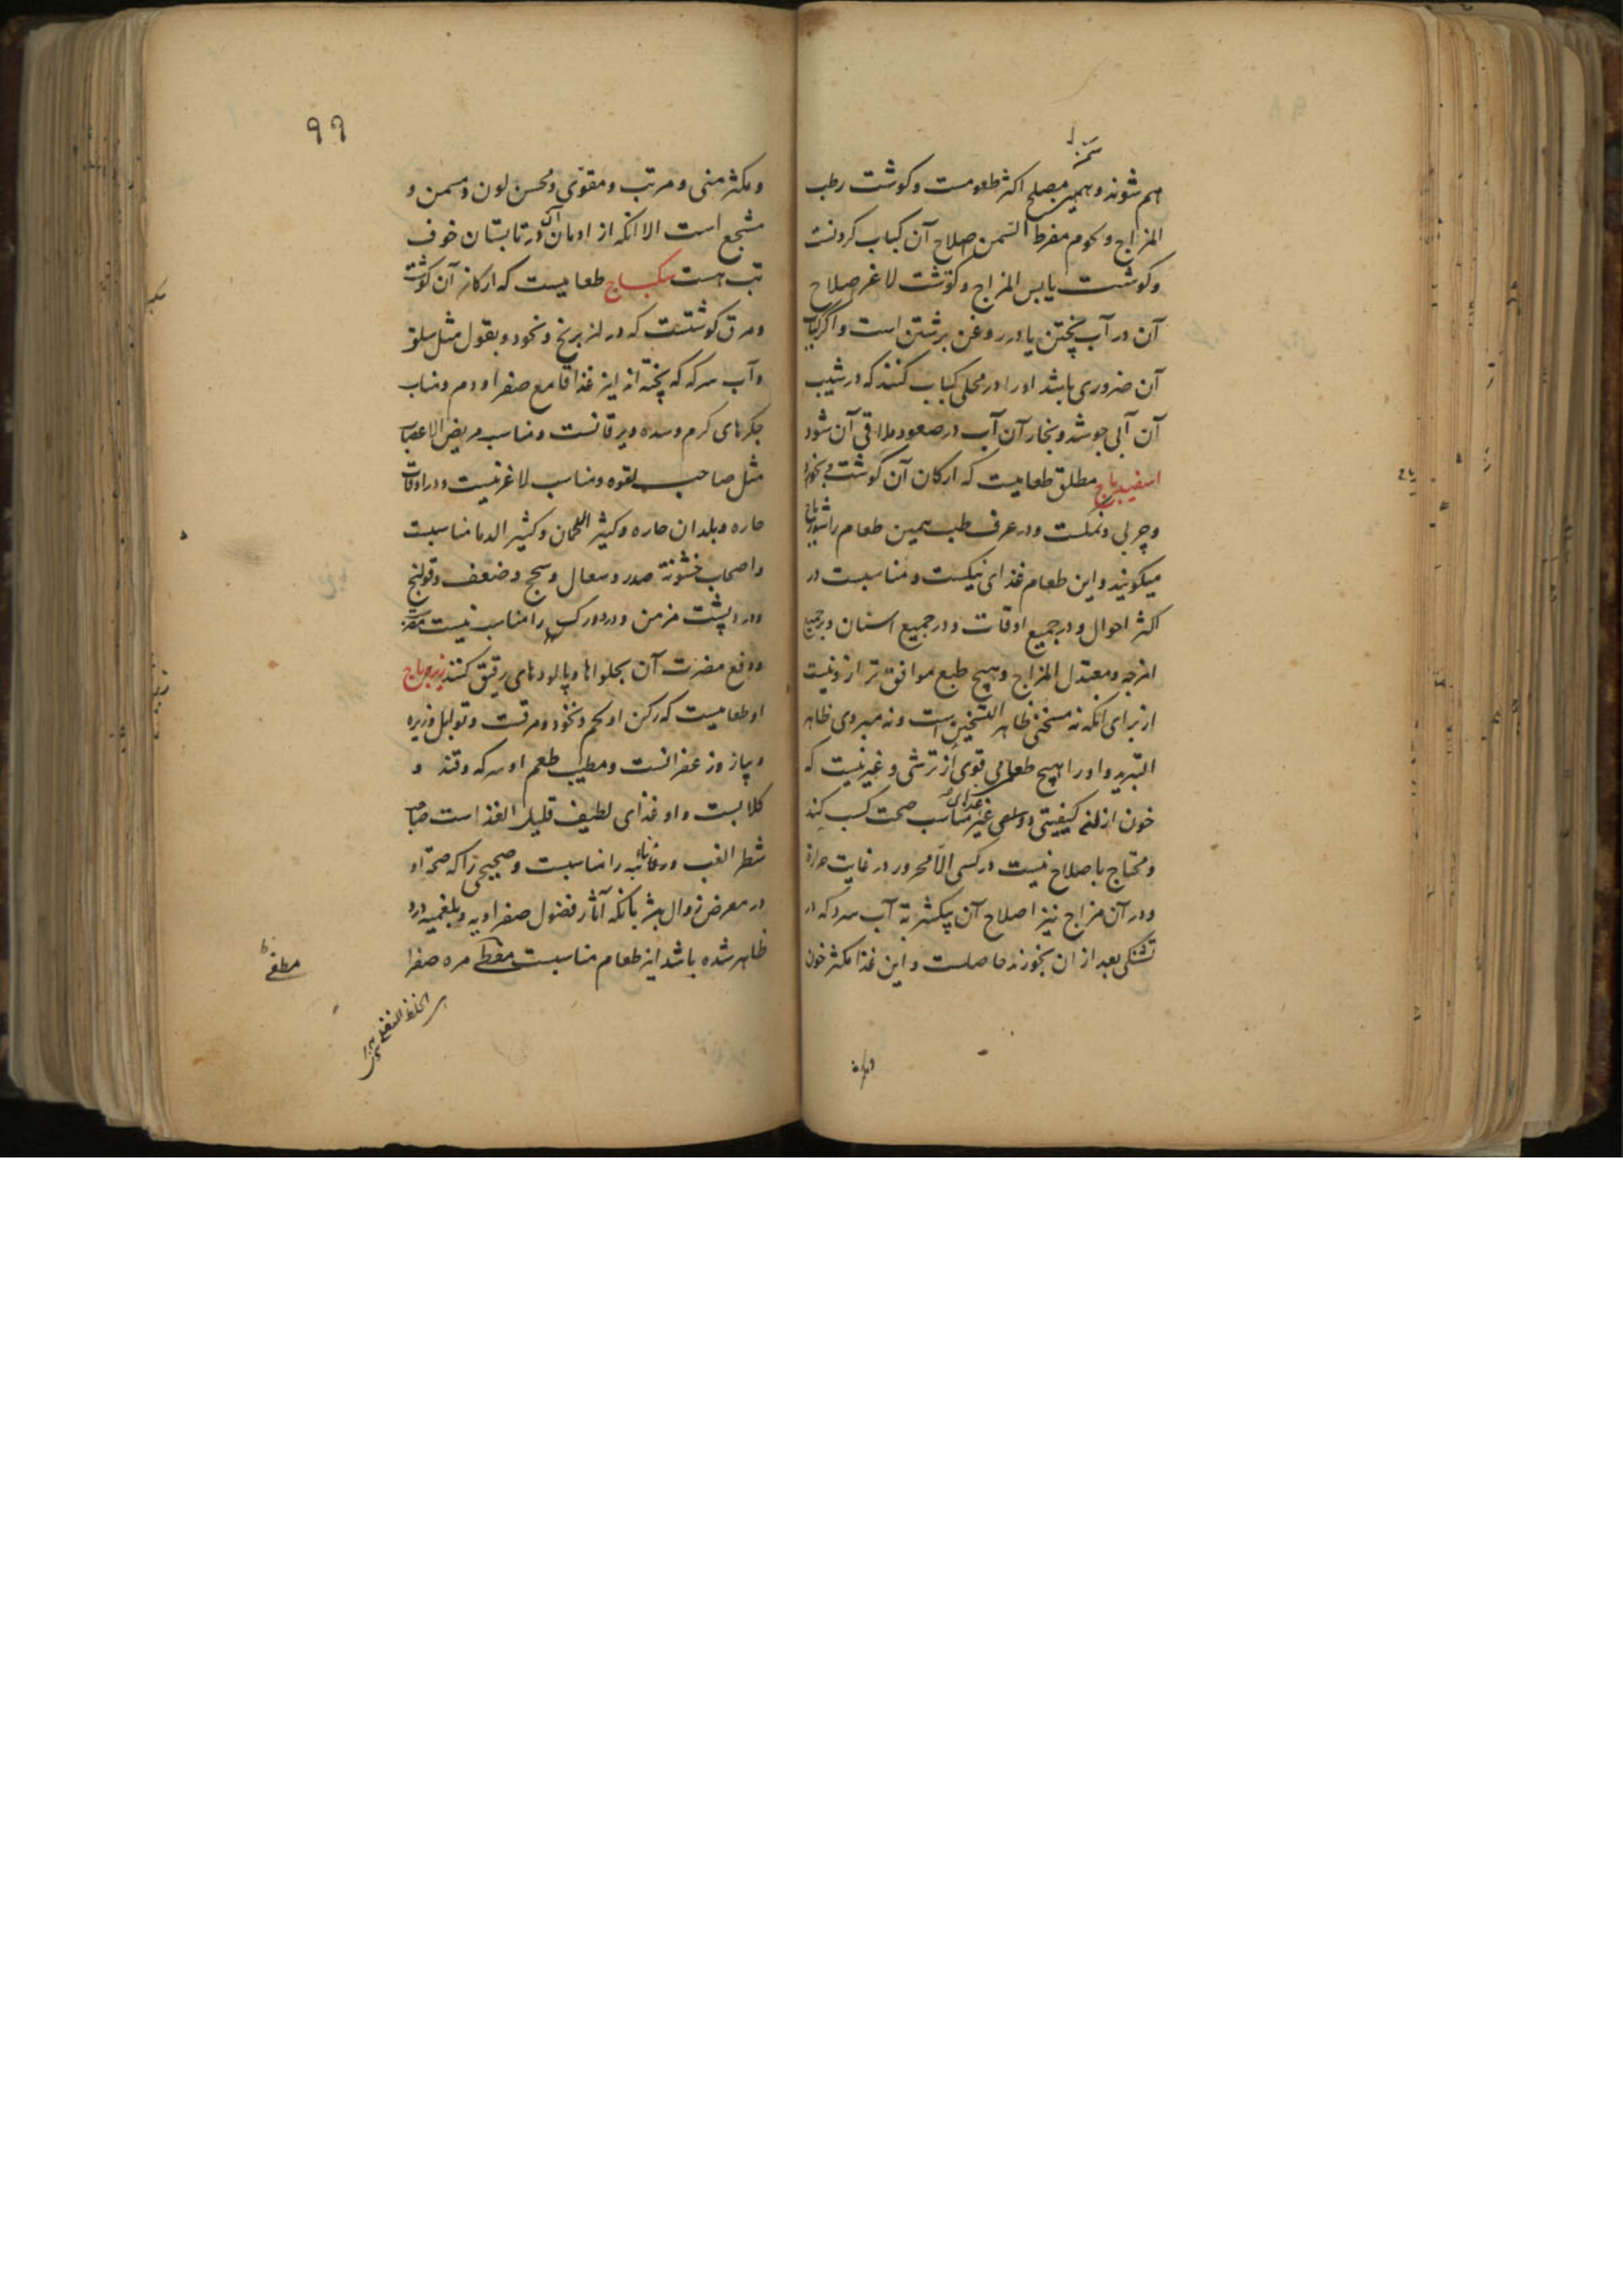 هم شوند و همین مصلح اکثر طعومست و کوشت رطب
المزاج و لحوم مفرط السمن صلاح آن کباب کردنست
و کوشت یابس المزاج و کوشت لاغر صلاح
آن در آب پختن یا در روغن برشتن است و اگر کباب
آن ضروری باشد او را در محلی کباب کنند که در شیب
آن آبی جوشد و بخار آن آب در صعود ملاقی آن شود
اسفیدباج مطلق طعامیست که ارکان آن کوشت و نخود
و چربی و نمکست و در عرف طب همین طعام را شورباج
میکویند و این طعام غذای نیکست و مناسبست در
اکثر احوال و در جمیع اوقات و در جمیع اسنان و در جمیع
امزجه و معتدل المزاج و هیچ طبع موافق تر ازو نیست
از برای آنکه نه مسخنی ظاهر التسخین است و نه مبردی ظاهر
التبرید و او را هیچ طعامی قوی از ترشی و غیر نیست که
خون از کیفیتی غیر مناسب صحت کسب کند
و محتاج باصلاح نیست در کسی الا محرور در غایت حرارة
و در آن مزاج نیز اصلاح آن بیکشربة آب سرد که در
تشنکی بعد از ان بخورند حاصلست و این غذا مکثر خون
۹۹
و مکثر منی و مرتب و مقوی و محسن لون و مسمن و
مشجع است الا آنکه از ادمان آن در تابستان خوف
تب هست سکباج طعامیست که ارکان آن کوشت
و مرق کوشتست که در برنج و نخود و بقول مثل سلق
و آب سرکه که پخته اند این غذا قامع صفرا و دم و مناسب
جکرهای کرم و سده و یرقانست و مناسب مریض الاعصاب
مثل صاحب لقوه و مناسب لاغر نیست و در اوقات
حاره و بلدان حاره و کثیر اللحمان و کثیر الدما مناسبست
و اصحاب خشونة صدر و سعال و سحج و ضعف و قولنج
و درد پشت مزمن و درد ورک را مناسب نیست
و دفع مضرت آن بحلواها و پالودهای رقیق کنند زیرباج
او طعامیست که رکن او لحم و نخود و مرقست و توابل و زیره
و پیاز و زعفرانست و مطیب طعم او سرکه و قند و
کلابست و او غذای لطیف قلیل الغذا است صاحب
شطر الغب را مناسبست و صحیحی را که صحة او
در معرض زوال باشد بآنکه آثار فضول صفراویه و بلغمیه درو
ظاهر شده باشد این طعام مناسبست مره صفرا